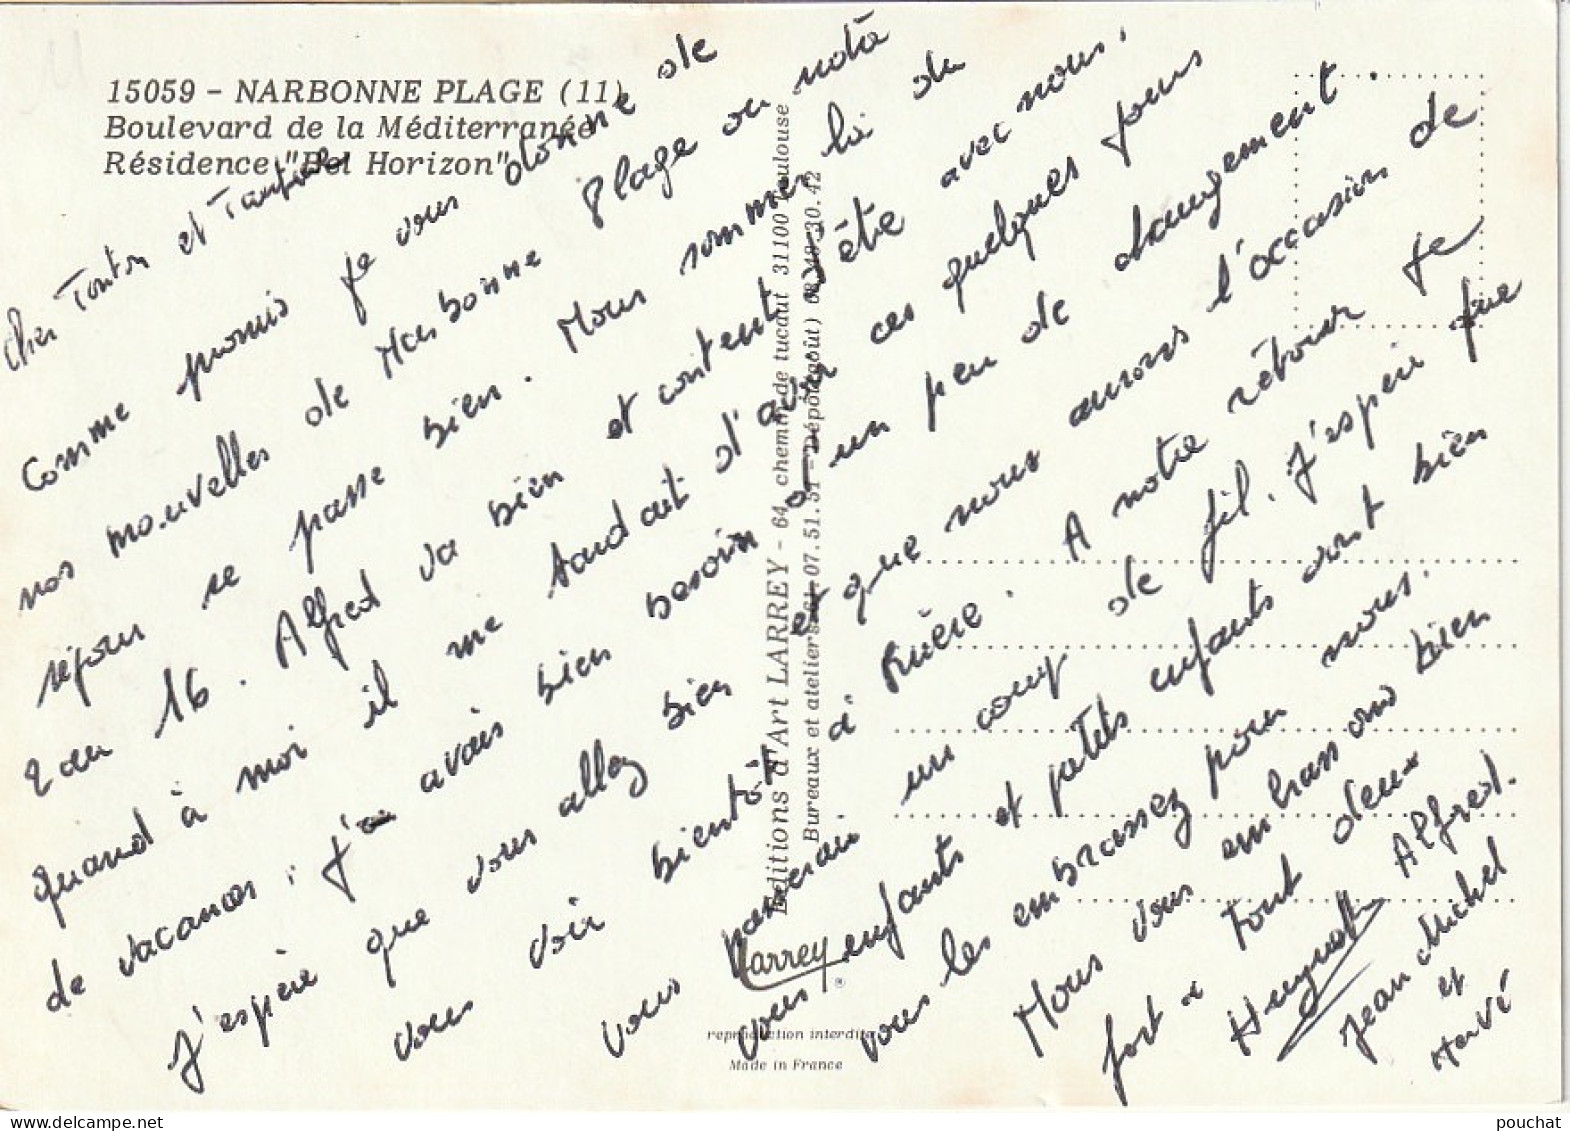 15059 - NARBONNE PLAGE (11)
Boulevard de la Méditerranée
Résidence "Bel Horizon"
Cher Tonton et Tantine
Comme promis je vous donne de
nos nouvelles de Narbonne Plage ou notre
séjour se passe bien. Nous sommes là du
2 au 16. Alfred va bien et content d'être avec nous.
quand à moi il me tardait d'avoir ces quelques jours
de vacances, j'en avais bien besoin un peu de changement.
J'espère que vous allez bien et que nous aurons l'occasion de
vous voir bientôt à Rivière. A notre retour je
vous passerai un coup de fil. J'espère que
vous, enfants et petits enfants vont bien
vous les embrassez pour nous.
Nous vous embrassons bien
fort Tout deux
Huguette Alfred.
Jean Michel
et
Hervé
Editions d'Art LARREY - 64, chemin de tucaut 31100 Toulouse
Bureaux et ateliers 07.51.51 - Dépôt 42
Larrey
®
reproduction interdite
Made in France
pouchat